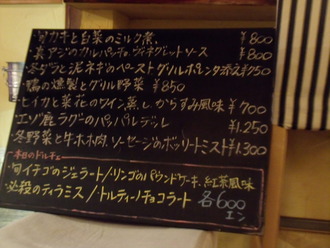 ・旬カキと白菜のミルク煮、 ¥800
・真アジのカルパッチョ、ヴィネグレットソース ¥800
・冬ぶりと泥ネギのペースト グリルポレンタ添え ¥750
・鴨の燻製とグリル野菜 ¥850
・ヒイカと菜花のワイン蒸し、からすみ風味 ¥700
・エゾ鹿ラグーのパッパルデッレ ¥1,250
・冬野菜と牛ホホ肉、ソーセージのボッリートミスト ¥1,300
本日のドルチェ
・旬イチゴのジェラート/リンゴのパウンドケーキ、紅茶風味
・必殺のティラミス/トルティーノチョコラート 各600エン